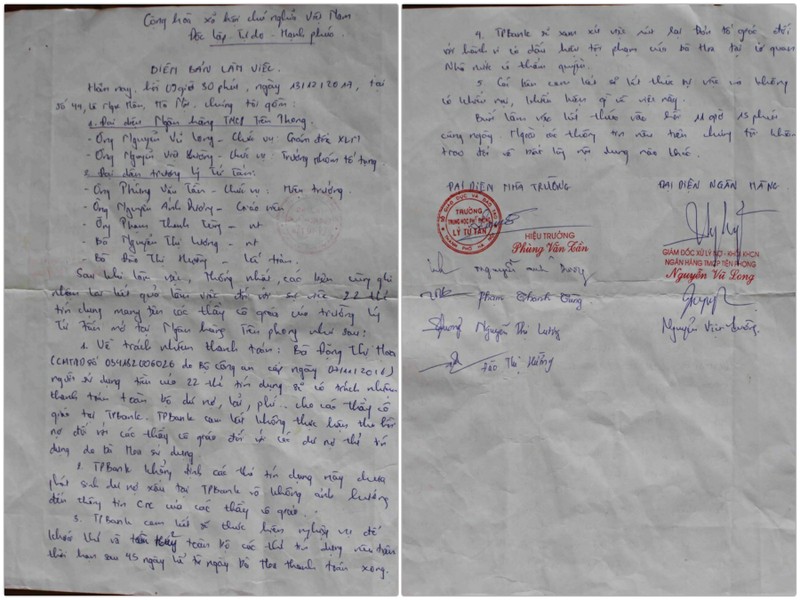 Cộng hòa xã hội chủ nghĩa Việt Nam
Độc lập - Tự do - Hạnh phúc
BIÊN BẢN LÀM VIỆC
Hôm nay, hồi 09 giờ 50 phút, ngày 13/12/2017, tại
số 44, Lê Ngọc Hân, Hà Nội, chúng tôi gồm:
1. Đại diện Ngân hàng TMCP Tiên Phong
- Ông Nguyễn Vũ Long - Chức vụ: Giám đốc XLN
- Ông Nguyễn Viết Cường - chức vụ: Trưởng phòng tố tụng
2. Đại diện trường Lý Tử Tấn:
- Ông Phùng Văn Tấn - Chức vụ: Hiệu trưởng.
- Ông Nguyễn Anh Dương - Giáo viên
- Ông Phạm Thanh Tùng - nt
- Bà Nguyễn Thị Lương - nt
- Bà Đào Thị Hường - Kế toán.
Sau khi làm việc, thống nhất, các bên cùng ghi
nhận lại kết quả làm việc đối với sự việc 22 thẻ
tín dụng mang tên các thầy cô giáo của trường Lý
Tử Tấn mở tại Ngân hàng Tiên phong như sau:
1. Về trách nhiệm thanh toán: Bà Đặng Thị Hoa
(CMTND số do Bộ công an cấp ngày )
người sử dụng tiền của 22 thẻ tín dụng sẽ có trách nhiệm
thanh toán toàn bộ dư nợ, lãi, phí.. cho các thầy cô
giáo tại TPBank. TPBank cam kết không thực hiện thu hồi
nợ đối với các thầy cô giáo đối với các dư nợ thẻ tín
dụng do bà Hoa sử dụng
2. TPBank khẳng định các thẻ tín dụng này chưa
phát sinh dư nợ xấu tại TPBank và không ảnh hưởng
đến thông tin CIC của các thầy cô giáo.
3. TPBank cam kết sẽ thực hiện nghiệp vụ để
khóa thẻ và toàn bộ các thẻ tín dụng nêu trên
thời hạn sau 45 ngày kể từ ngày bà Hoa thanh toán xong.
4. TPBank sẽ xem xét việc rút lại Đơn tố giác đối
với hành vi có dấu hiệu tội phạm của bà Hoa tại cơ quan
Nhà nước có thẩm quyền.
5. Các bên cam kết sẽ kết thúc sự việc và không
có khiếu nại, khiếu kiện gì về việc này.
Buổi làm việc kết thúc vào hồi 11 giờ 15 phút
cùng ngày. Ngoài nội thông tin nêu trên chúng tôi không
trao đổi về bất kỳ nội dung nào khác.
ĐẠI DIỆN NHÀ TRƯỜNG
ĐẠI DIỆN NGÂN HÀNG
TRƯỜNG
LÝ TỬ TẤN
HIỆU TRƯỞNG
Phùng Văn Tấn
GIÁM ĐỐC XỬ LÝ NỢ - KHỐI KHCN
NGÂN HÀNG TMCP TIÊN PHONG
Nguyễn Vũ Long
Nguyễn Anh Dương
Phạm Thanh Tùng
Nguyễn Thị Lương
Đào Thị Hường
Nguyễn Viết Cường